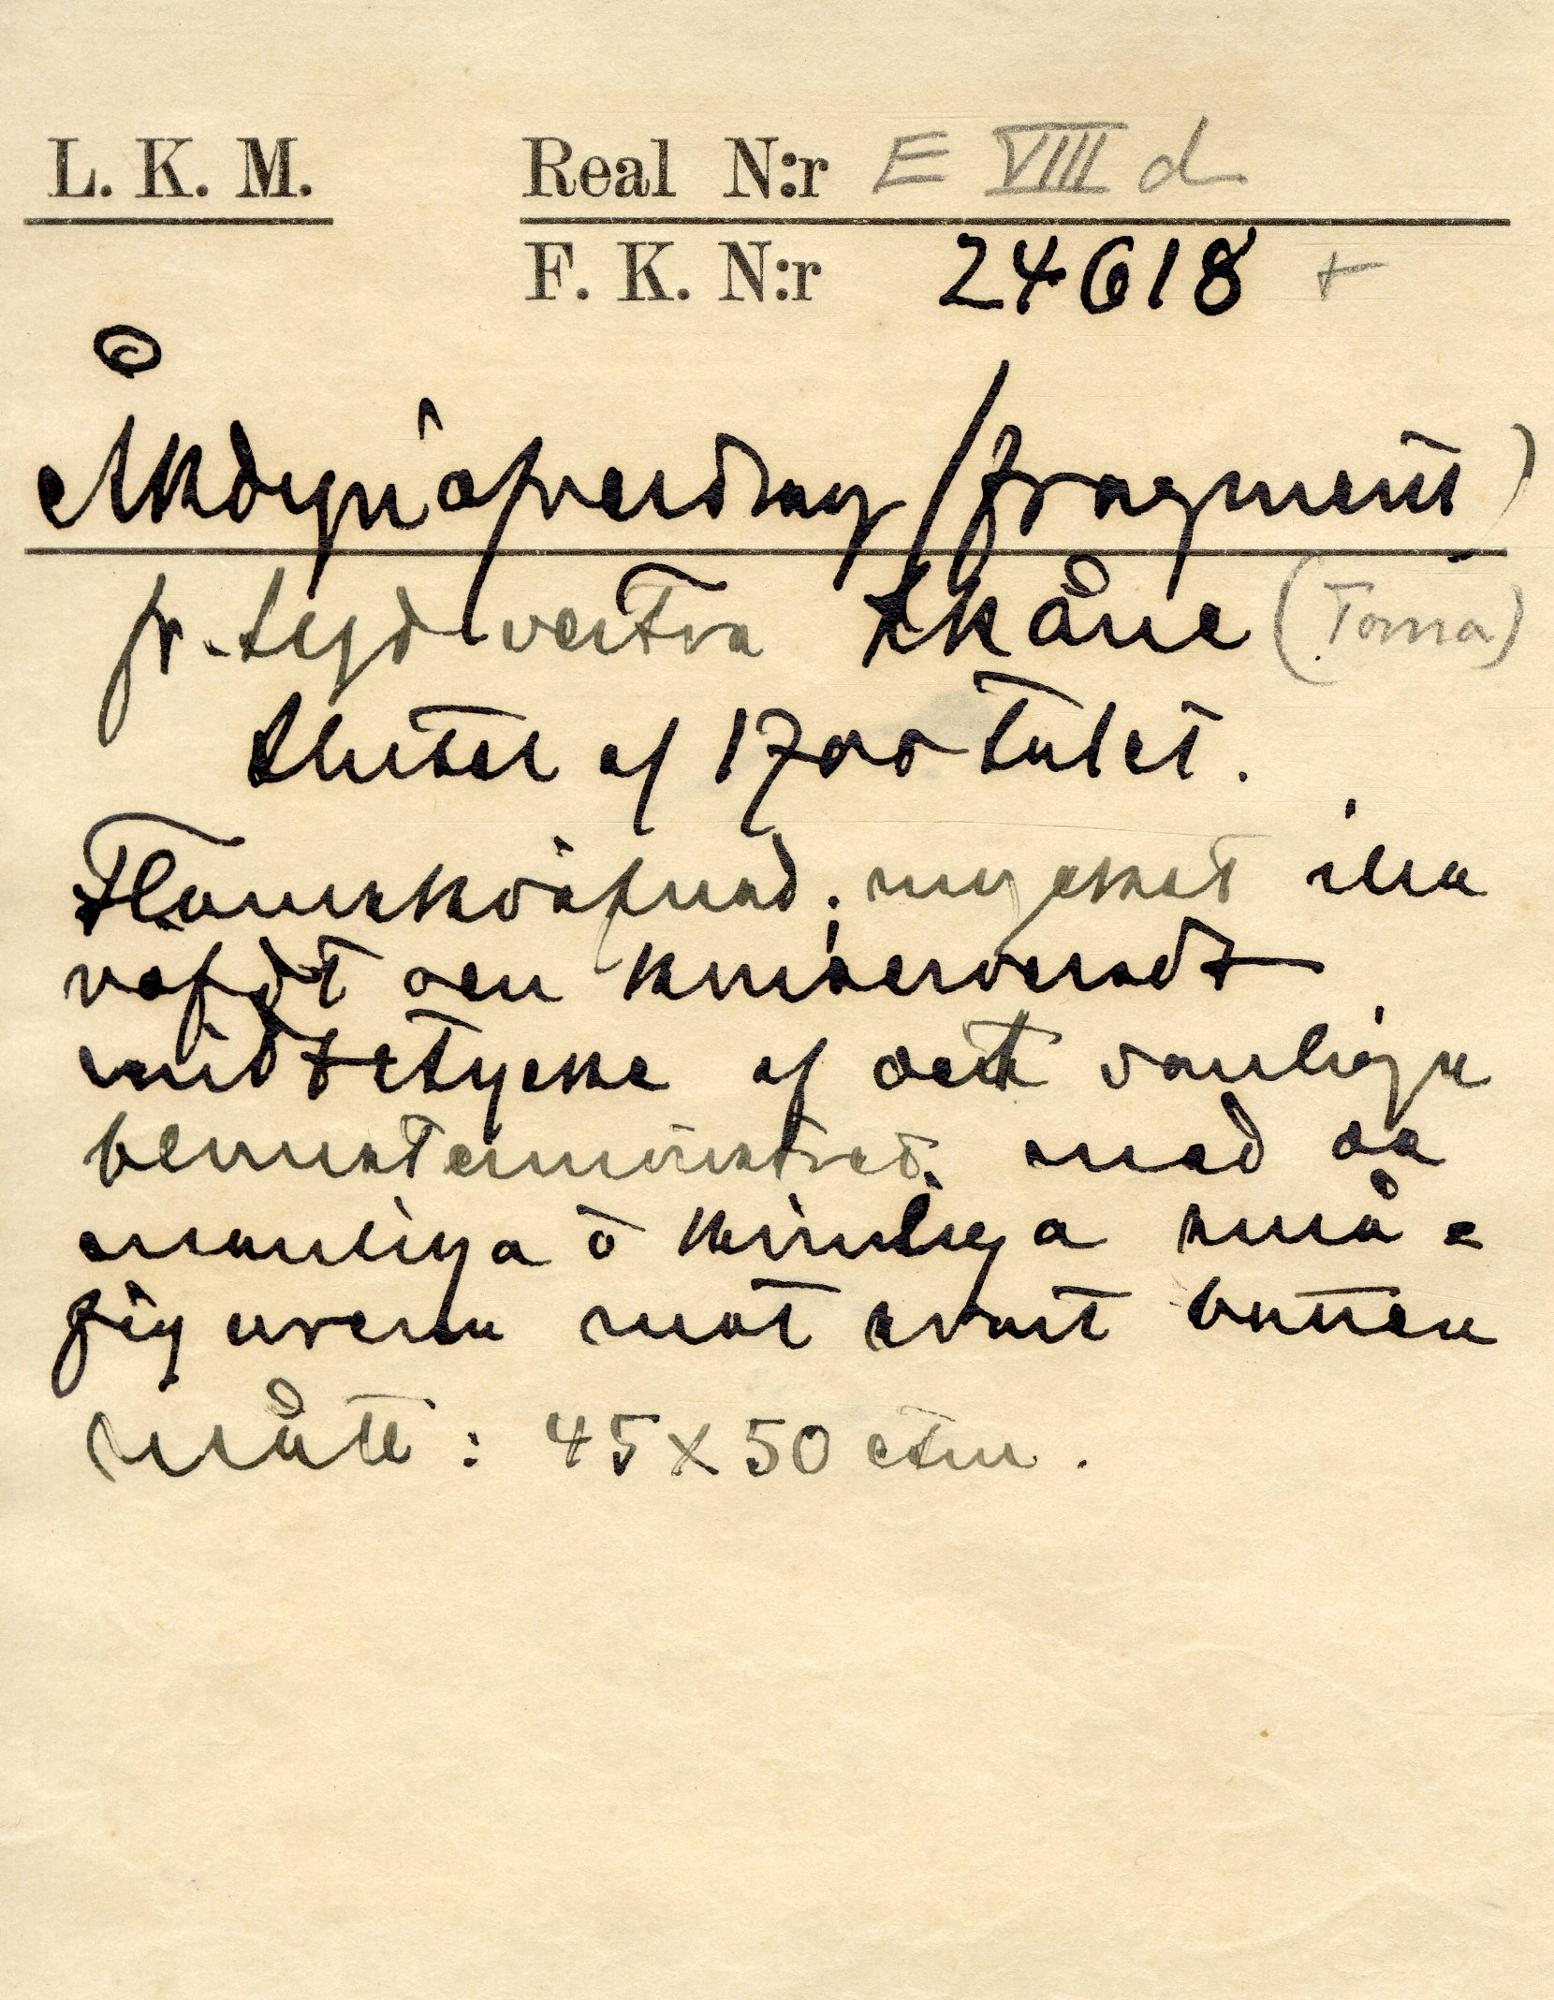 L. K. M. Real N:r E VIII d
F. K. N:r 24618 +
Åkdynöfverdrag (fragment)
fr. sydvestra Skåne (Torna)
slutet af 1700 talet.
Flamskväfnad; mycket illa
väfdt oen konserveradt
midtstycke af det vanliga
blomstermönstret, med de
manliga o kvinliga små=
figurerna mot svart botten
mått: 45x50 ctm.